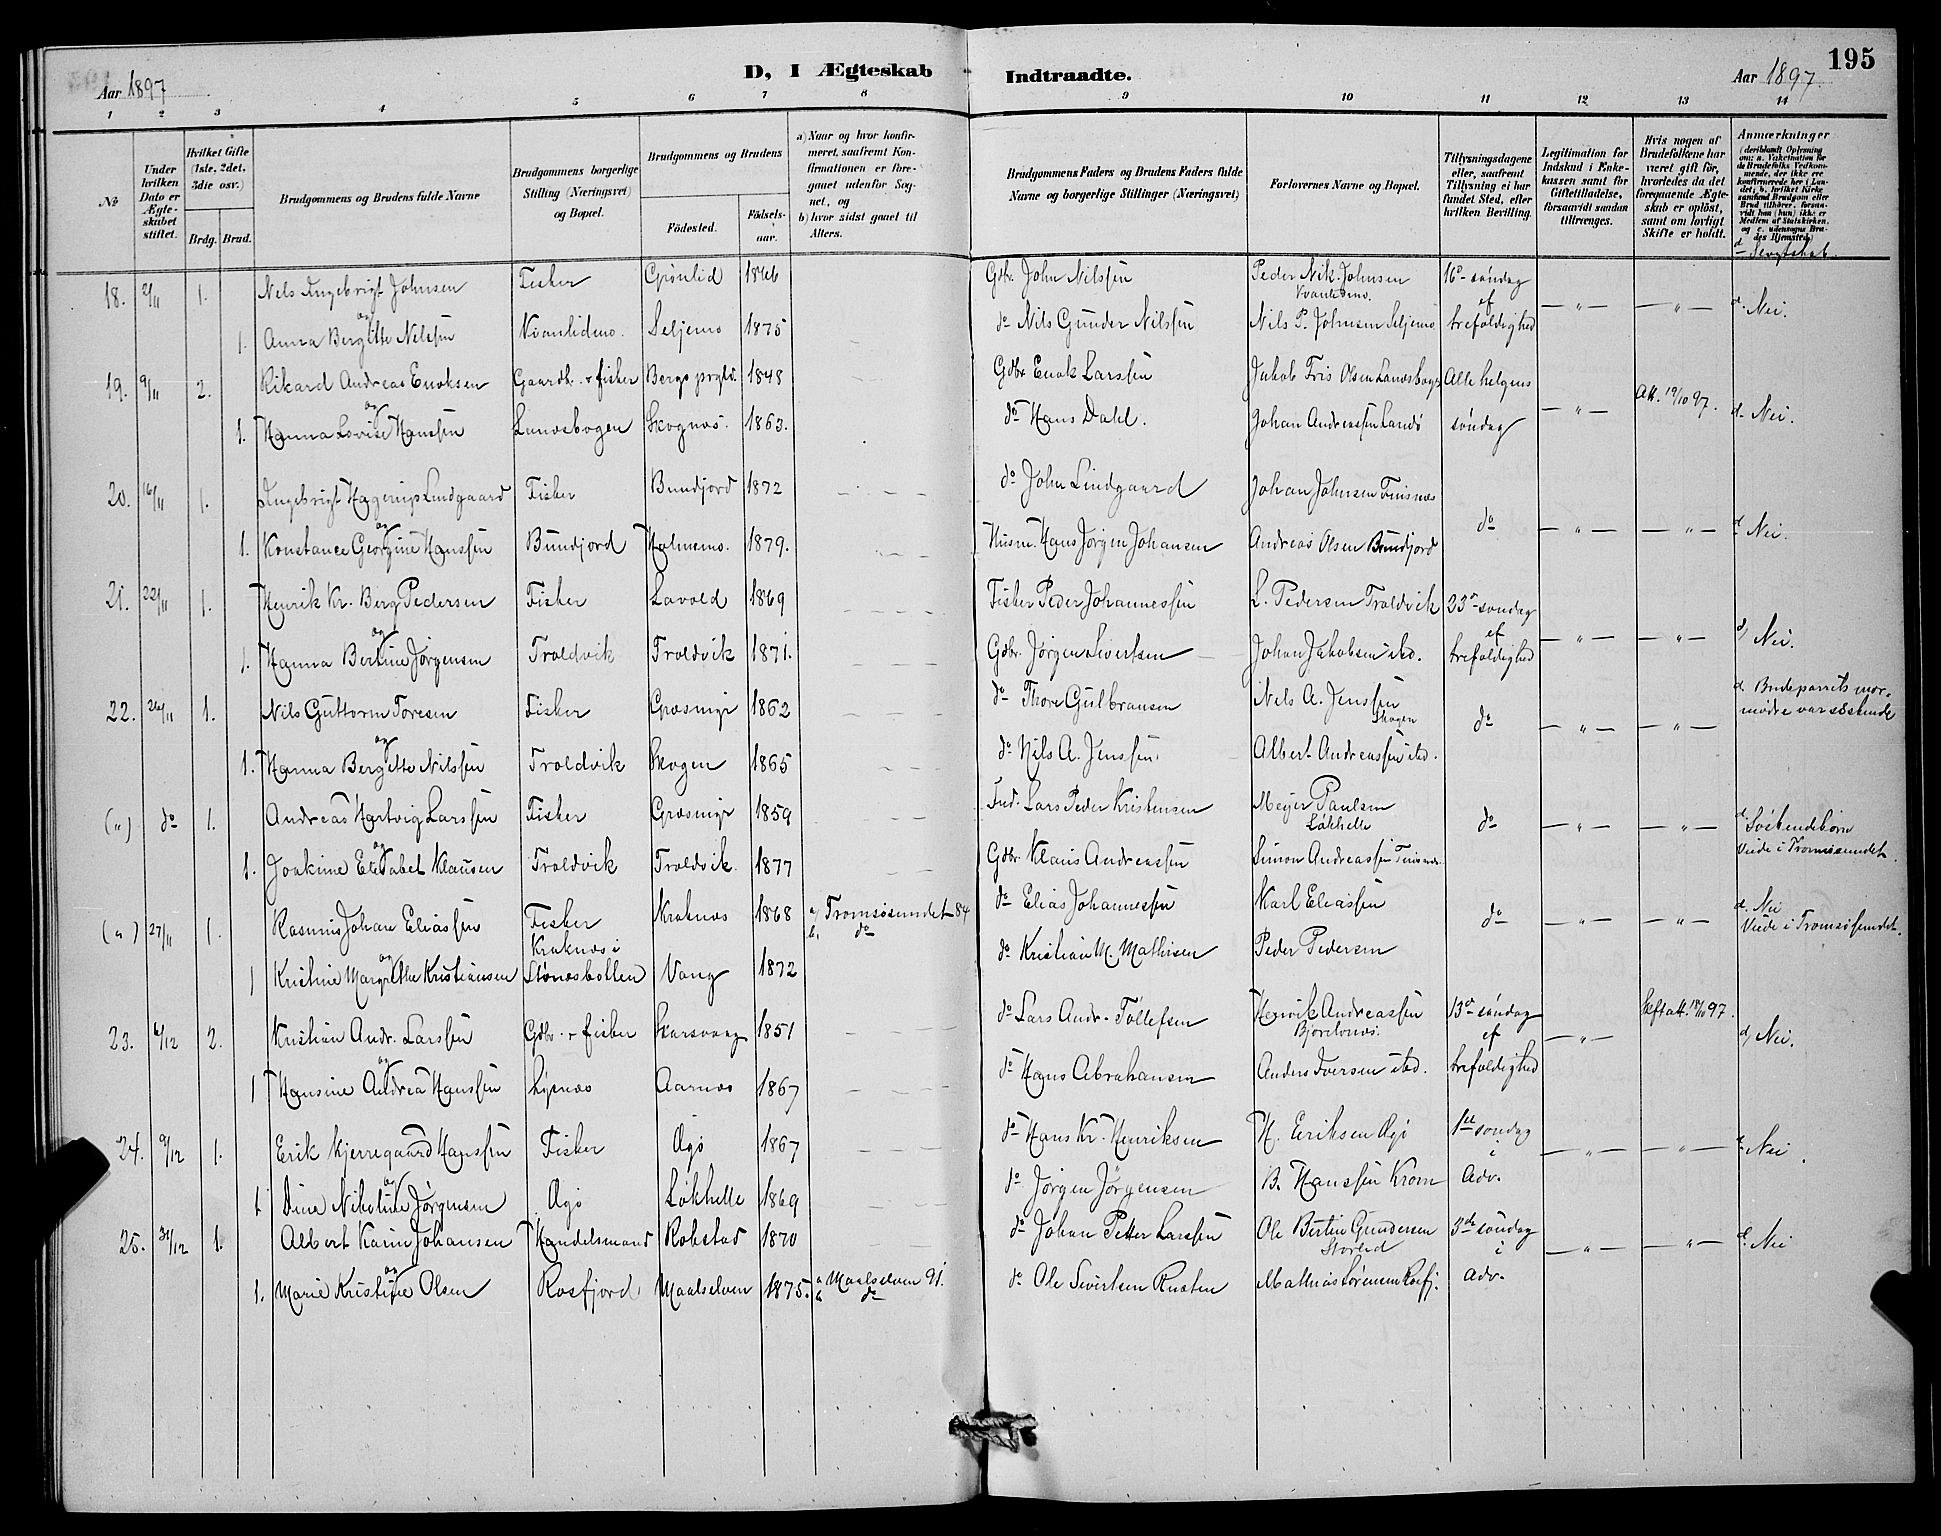 195
Aar 1897
D, I Ægteskab Indtraadte.
Aar 1897.
1 2 3 4 5 6 7 8 9 10 11 12 13 14
No
Under hvilken Dato er Ægteskabet stiftet.
Hvilket Gifte (1ste, 2det, 3die osv.)
Brdg. Brud.
Brudgommens og Brudens fulde Navne
Brudgommens borgerlige Stilling (Næringsvei) og Bopæl.
Brudgommens og Brudens
Födested. Födselsaar.
a) Naar og hvor konfirmeret, saafremt Konfirmationen er foregaaet udenfor Sognet, og
b) hvor sidst gaaet til Alters.
Brudgommens Faders og Brudens Faders fulde Navne og borgerlige Stillinger (Næringsvei)
Forlovernes Navne og Bopæl.
Tillysningsdagene eller, saafremt Tillysning ei har fundet Sted, efter hvilken Bevilling.
Legitimation for Indskud i Enkekassen samt for Giftetilladelse, forsaavidt saadan tiltrænges.
Hvis nogen af Brudefolkene har været gift før, hvorledes da det foregaaende Ægteskab er oplöst, samt om lovligt Skifte er holdt.
Anmærkninger (deriblandt Oplysning om: a. Vakcination for de Brudefolks Vedkommende, der ikke ere konfirmerede her i Landet; b. hvilket Kirkesamfund Brudgom eller Brud tilhører, forsaavidt han (hun) ikke er Medlem af Statskirken, og c. udensogns Brudes Hjemsted.)
d- Slegtskab.
18. 2/11 1. Nels Ingebrigt Johnsen Fisker Grönlid 1866 Gdbr. John Nilssen Peder Nik. Johnsen Kvanlidmo. 16de söndag ef trefoldighed — " — — " — d. Nei.
og
1. Anna Bergitte Nilssen Kvanlidmo. Seljemo 1875 do Nils Gunder Nilssen Nils P. Johnsen Seljemo
19. 9/11 2. Rikard Andreas Enoksen Gaardb. & fisker Bergs prgld. 1848 Gdbr Enok Larssen Jakob Fris Olsen Lanesbogen Alle helgens söndag — " — Att. 19/10 97. d. Nei.
og
1. Hanna Lovise Hanssen Lanesbogen Skognes. 1863. do Hans Dahl. Johan Andreassen Sandö
20. 16/11 1. Ingebrigt Hagerup Lindgaard Fisker Bundjord 1872 do John Lindgaard Johan Johnsen Finsnes do — " — — " — d. Nei.
og
1. Konstance Georgine Hanssen Bundjord Holmemo. 1879. Husm. Hans Jörgen Johansen Andreas Olsen Bundjord
21. 22/11 1. Henrik Kr. Berg Pedersen Fisker Lavold 1869 Fisker Peder Johannessen L. Pedersen Troldvik 23de söndag ef trefoldighed — " — — " — d) Nei.
og
1. Hanna Bertine Jörgensen Troldvik Troldvik 1871. Gdbr. Jörgen Sivertsen Johan Jakobsen sted.
22. 26/11 1. Nils Guttorm Toresen Fisker Græsmyr 1862 do Thore Gulbransen Nils A. Jenssen Skogen do — " — — " — d. Brudeparrets mormödre var söskende
og
1. Hanna Bergitte Nilssen Troldvik Skogen 1865 do Nils A. Jenssen. Albert Andreassen sted.
(") do 1. Andreas Hartvig Larssen Fisker Græsmyr 1859 Ind. Lars Peder Kristensen Meyer Paulsen Løkhelle do — " — — " — d. Söskendebörn Viede i Tromsösundet.
og
1. Joakime Elisabet Klausen Troldvik Troldvik. 1877 Gdbr. Klaus Andreassen Simon Andreassen Finsnes.
(") 27/11 1. Rasmus Johan Eliassen Fisker Kraknes i 1868 a/ Tromsösundet 84 b. do do Elias Johannessen Karl Eliassen do — " — — " — d. Nei Viede i Tromsösundet.
og
1 Kristine Margrethe Kristiansen Stönesbotten Vang 1872 do Kristian M. Mathisen Peder Pedersen
23. 6/12 2. Kristian Andr. Larssen Gdbr. & fisker Skarsvaag 1851 do Lars Andr. Tollefsen Henrik Andreassen Bjorelvnes. 13de söndag ef trefoldighed — " — Skift att. 18/10 97. d) Nei.
og
1 Hansine Andrea Hanssen Lysnes Aarnes 1867 do Hans Abrahamsen Anders Iversen sted.
24. 9/12 1. Erik Kjerregaard Hanssen Fisker Ægö 1867 do Hans Kr. Henriksen H. Eriksen Ægö 1ste söndag i Adv. — " — — " — d. Nei.
og
1 Dina Nikoline Jörgensen Ægö Løkhelle 1869 do Jörgen Jörgensen B. Hanssen Krom
25. 31/12 1. Albert Karin Johansen Handelsmand Robstad 1870 do Johan Petter Larssen Ole Bertin Gundersen Storlid 3die söndag i Adv. — " — — " — d. Nei
og
1. Marie Kristine Olsen Rosfjord. Maalselven 1875. a Maalselven 91. b do do Ole Sivertsen Rusten Mathias Sörensen Rosfj.